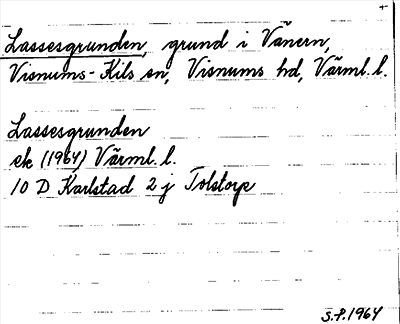 Lassesgrunden, grund i Vänern,
Visnums-Kils sn, Visnums hd, Värml. l.
Lassesgrunden
ek (1964) Värml. l.
10 D Karlstad 2 j Tolstorp
S.P. 1964